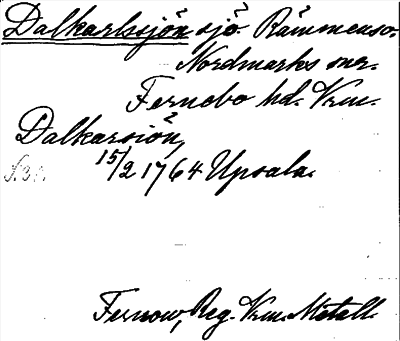 Dalkarlssjön sjö. Rämmenso.
Nordmarks snr.
Fernebo hd. Vrm.
Dalkarsiön,
15/2 1764 Upsala.
Fernow, Reg. Vrm. Metall.